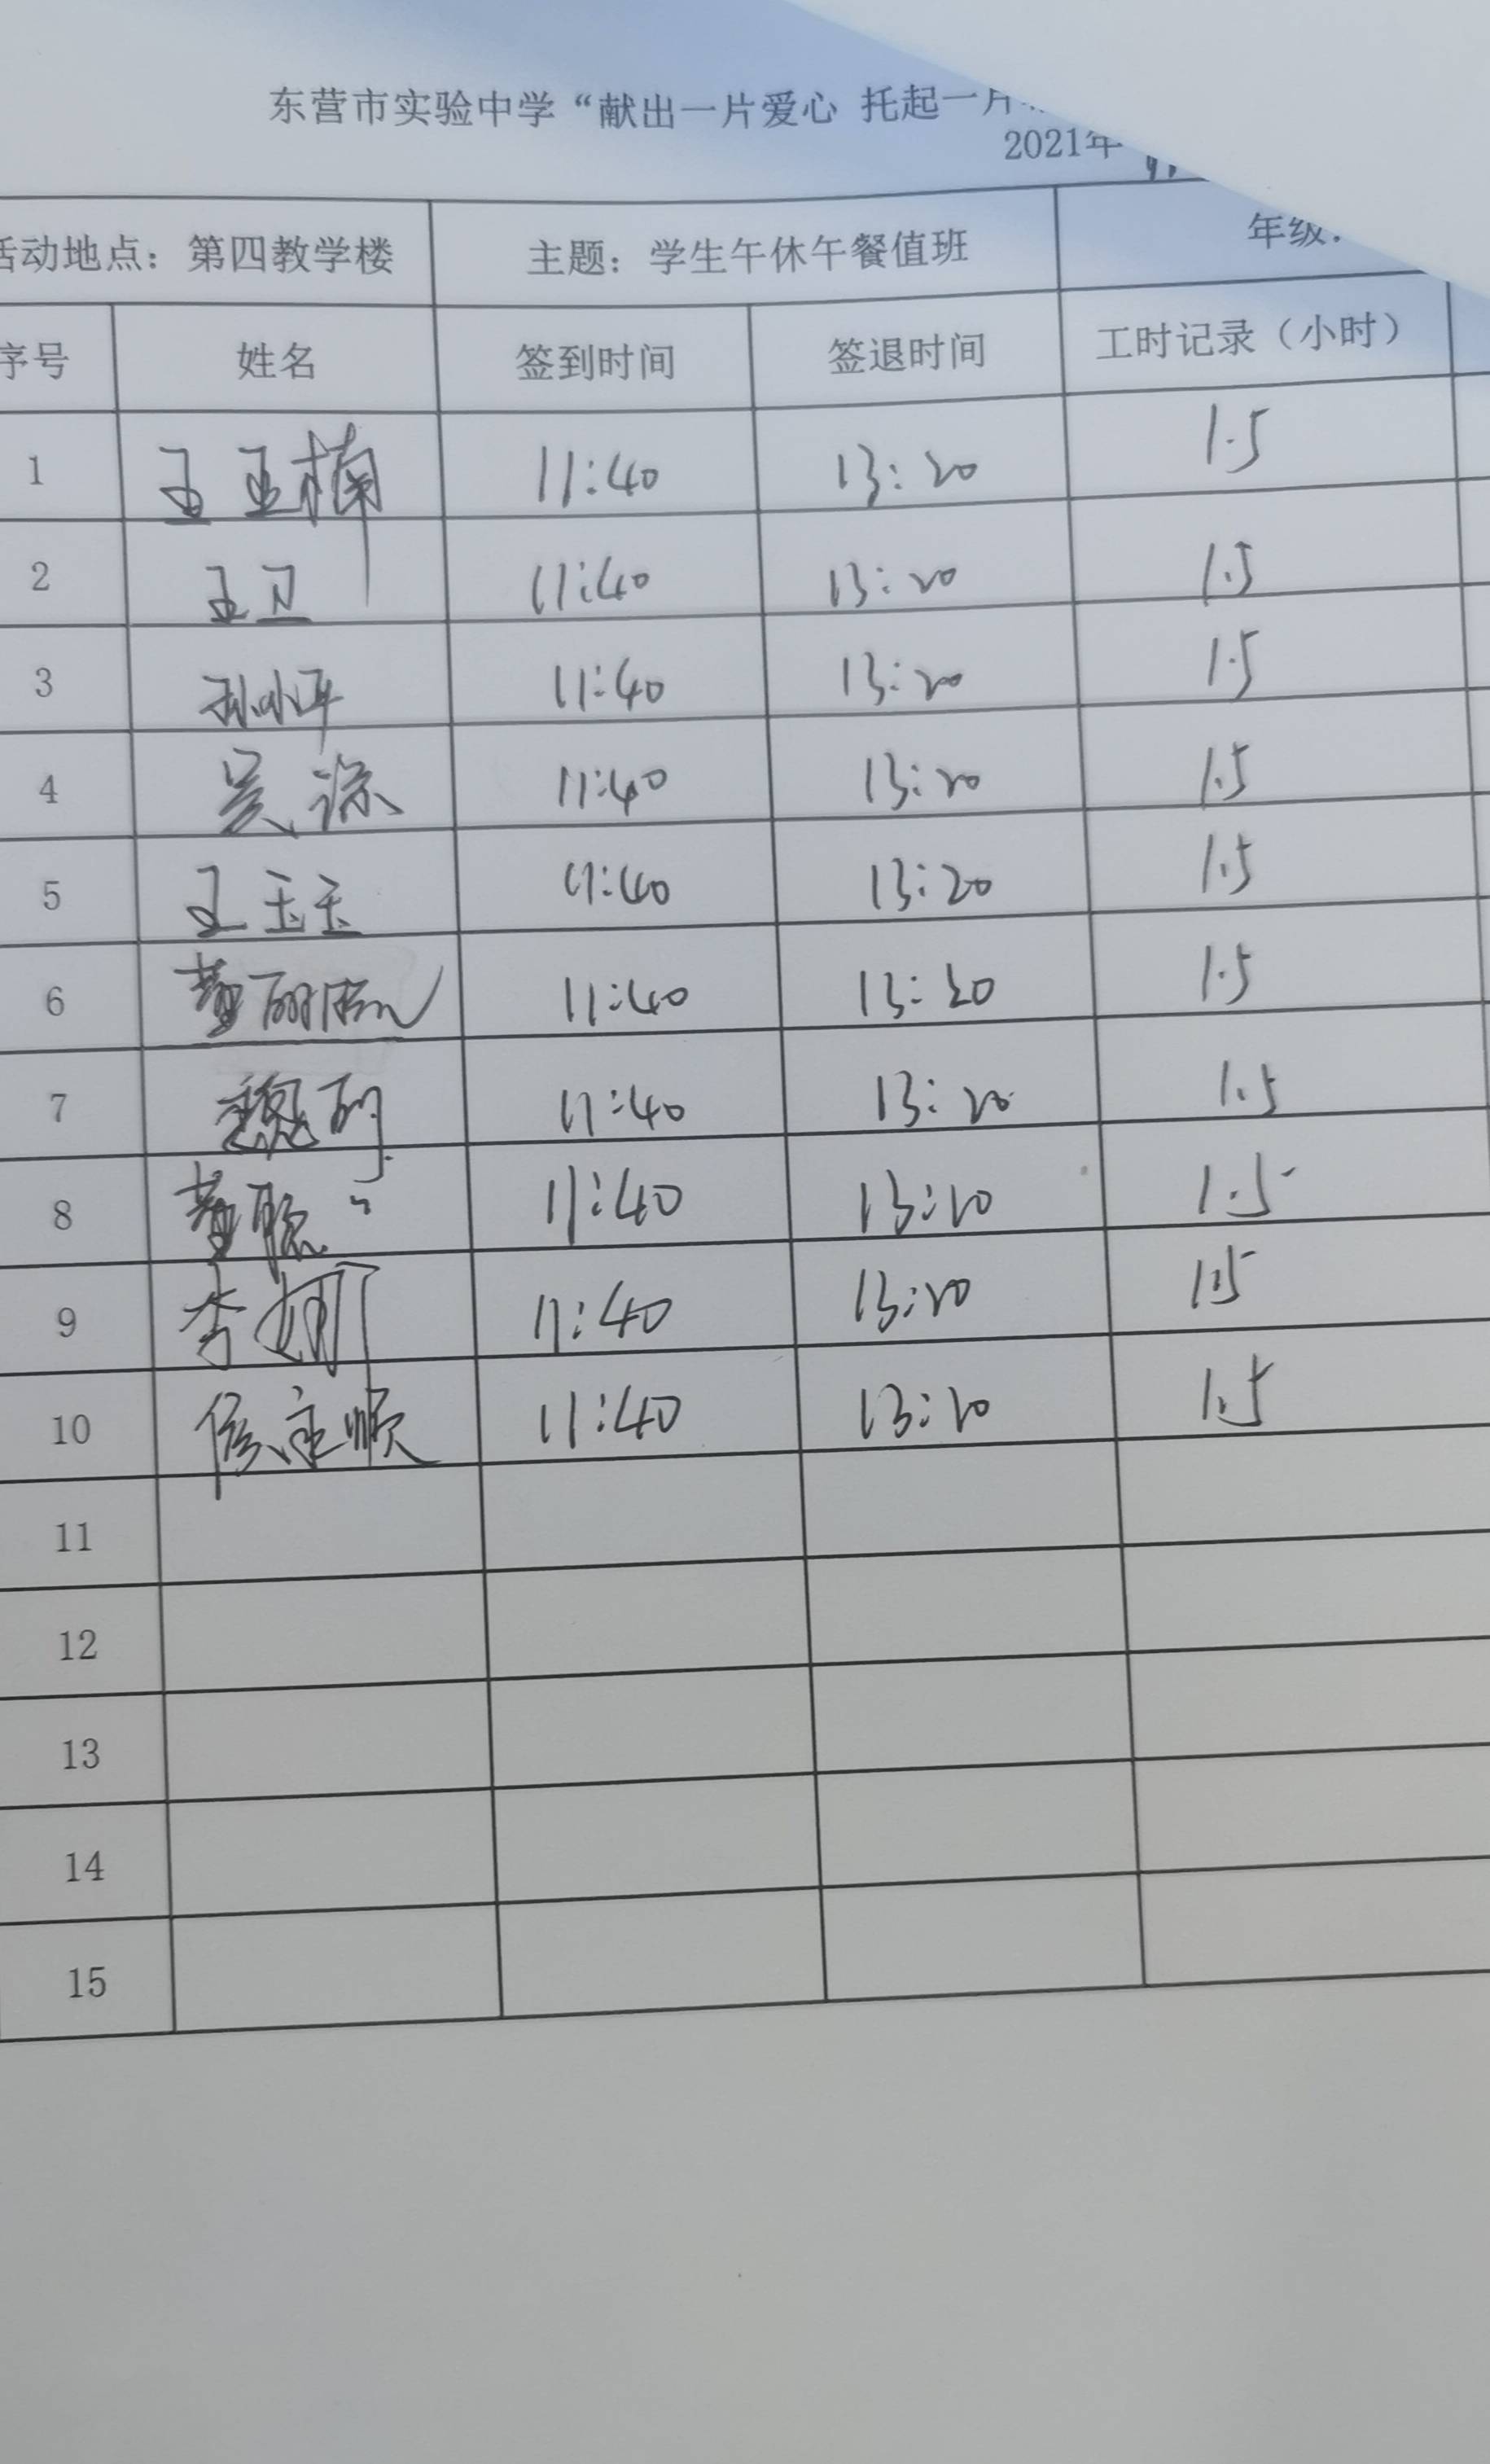 东营市实验中学“献出一片爱心 托起一片
2021年
活动地点：第四教学楼 主题：学生午休午餐值班 年级：
序号 姓名 签到时间 签退时间 工时记录（小时）
1 王亚楠 11:40 13:20 1.5
2 王卫 11:40 13:20 1.5
3 孙小平 11:40 13:20 1.5
4 吴琼 11:40 13:20 1.5
5 王玉玉 11:40 13:20 1.5
6 11:40 13:20 1.5
7 魏丽 11:40 13:20 1.5
8 董聪 11:40 13:20 1.5
9 李娜 11:40 13:20 1.5
10 11:40 13:20 1.5
11
12
13
14
15